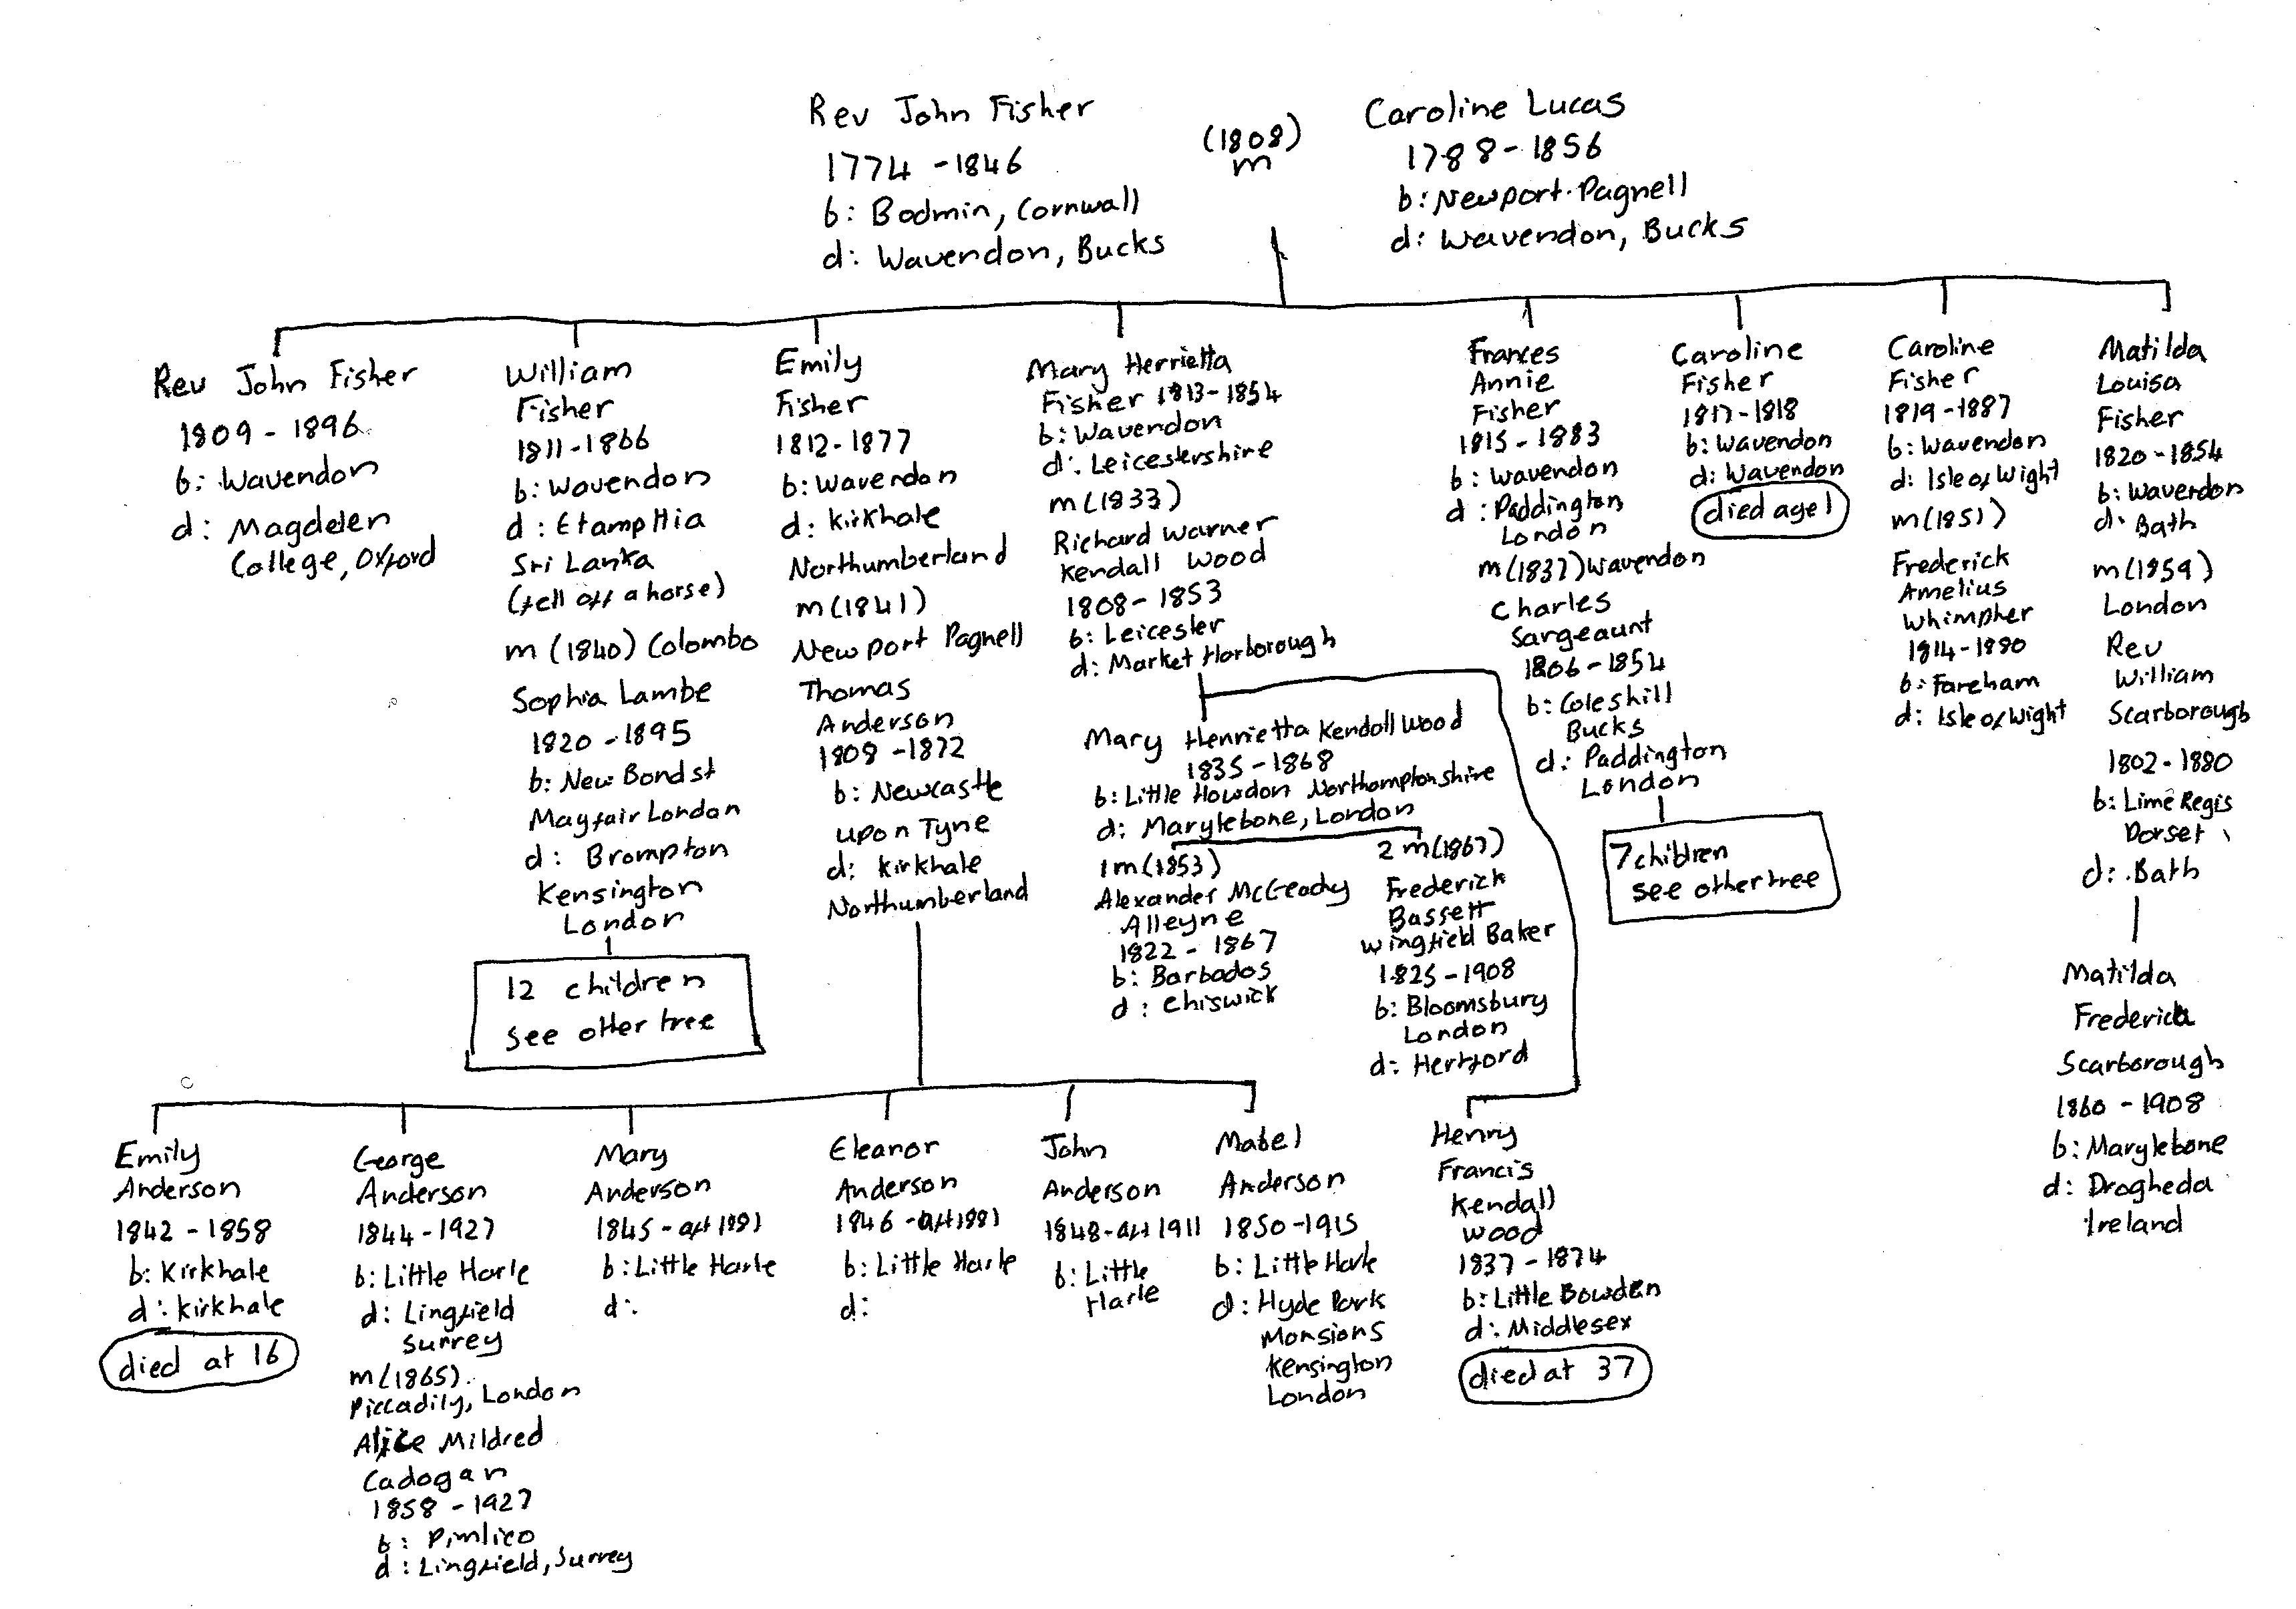 Rev John Fisher
1774 - 1846
b: Bodmin, Cornwall
d: Wavendon, Bucks
(1808)
m
Caroline Lucas
1788 - 1856
b: Newport Pagnell
d: Wavendon, Bucks
Rev John Fisher
1809 - 1896
b: Wavendon
d: Magdelen
College, Oxford
William
Fisher
1811 - 1866
b: Wavendon
d: Etamphia
Sri Lanka
(fell off a horse)
m (1840) Colombo
Sophia Lambe
1820 - 1895
b: New Bond st
Mayfair London
d: Brompton
Kensington
London
12 children
see other tree
Emily
Fisher
1812 - 1877
b: Wavendon
d: Kirkhale
Northumberland
m (1841)
Newport Pagnell
Thomas
Anderson
1808 - 1872
b: Newcastle
upon Tyne
d: Kirkhale
Northumberland
Mary Herrietta
Fisher 1813 - 1854
b: Wavendon
d: Leicestershire
m (1833)
Richard Warner
Kendall Wood
1808 - 1853
b: Leicester
d: Market Harborough
Mary Henrietta Kendall Wood
1835 - 1868
b: Little Howdon Northamptonshire
d: Marylebone, London
1m (1853)
Alexander McGeady
Alleyne
1822 - 1867
b: Barbados
d: Chiswick
2 m (1867)
Frederick
Bassett
Wingfield Baker
1825 - 1908
b: Bloomsbury
London
d: Hertford
Frances
Annie
Fisher
1815 - 1883
b: Wavendon
d: Paddington
London
m (1837) Wavendon
Charles
Sargeaunt
1806 - 1854
b: Coleshill
Bucks
d: Paddington
London
7 children
see other tree
Caroline
Fisher
1817 - 1818
b: Wavendon
d: Wavendon
died age 1
Caroline
Fisher
1819 - 1887
b: Wavendon
d: Isle of Wight
m (1851)
Frederick
Amelius
Whimpher
1814 - 1880
b: Fareham
d: Isle of Wight
Matilda
Louisa
Fisher
1820 - 1854
b: Wavendon
d: Bath
m (1859)
London
Rev
William
Scarborough
1802 - 1880
b: Lime Regis
Dorset
d: Bath
Matilda
Frederica
Scarborough
1860 - 1908
b: Marylebone
d: Drogheda
Ireland
Emily
Anderson
1842 - 1858
b: Kirkhale
d: Kirkhale
died at 16
George
Anderson
1844 - 1927
b: Little Harle
d: Lingfield
Surrey
m (1865)
Piccadily, London
Alice Mildred
Cadogan
1858 - 1927
b: Pimlico
d: Lingfield, Surrey
Mary
Anderson
1845 - aft 1881
b: Little Harle
d:
Eleanor
Anderson
1846 - aft 1881
b: Little Harle
d:
John
Anderson
1848 - aft 1911
b: Little
Harle
Mabel
Anderson
1850 - 1915
b: Little Harle
d: Hyde Park
Mansions
Kensington
London
Henry
Francis
Kendall
Wood
1837 - 1874
b: Little Bowden
d: Middlesex
died at 37